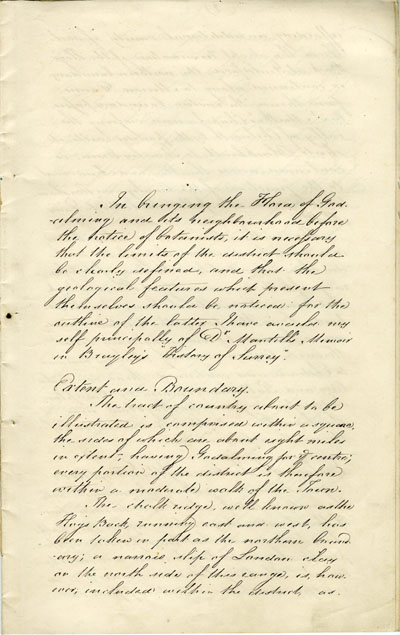 In bringing the Flora of God
-alming and its neighbourhood before
the notice of botanists, it is necessary
that the limits of the district should
be clearly defined, and that the
geological features which present
themselves should be noticed: for the
outline of the latter I have availed my
self principally of Dr Mantell's Memoir
in Brayley's "History of Surrey".
Extent and Boundary.
The tract of country about to be
illustrated is comprised within a square,
the sides of which are about eight miles
in extent, having Godalming for ye centre;
every portion of the district is therefore
within a moderate walk of the Town.
The chalk ridge, well known as the
Hogs Back, running east and west, has
been taken in part as the northern bound
-ary; a narrow slip of London clay
on the north side of this range, is, how
ever, included within the district, as